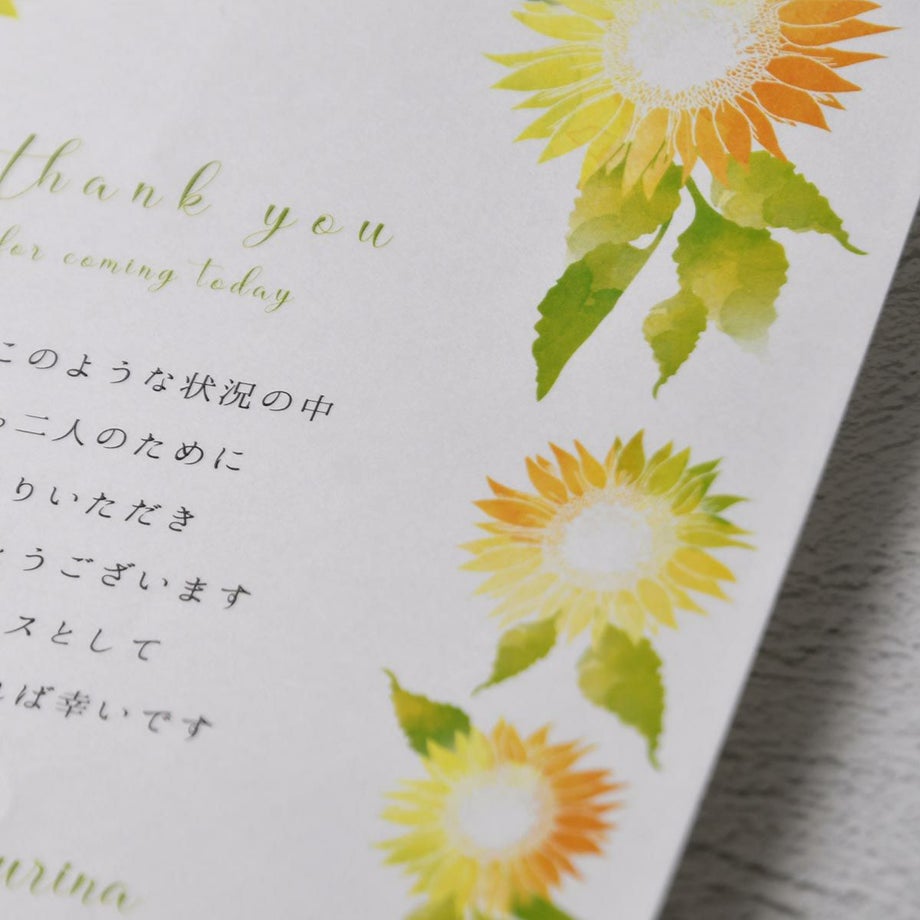 thank you
for coming today
このような状況の中
二人のために
りいただき
うございます
スとして
れば幸いです
urina